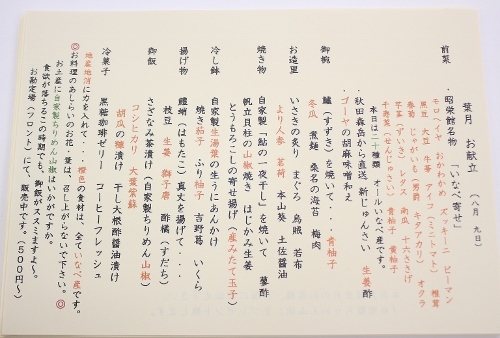 葉月 お献立 (八月 九日)
前菜 ・昭栄館名物 「いなべ寄せ」
モロヘイヤ おかわかめ ズッキーニ ピーマン
黒豆 大豆 牛蒡 アイコ(ミニトマト) 椎茸
春菊 じゃがいも(男爵 キタアカリ) オクラ
芋茎(ずいき) レタス 南京 十六ささげ
千寿菜(せんじゅさい) 青柚子 黄柚子
本日は二十種類 オールいなべ産です。
・秋田森岳から直送 新じゅんさい 生姜酢
・ゴーヤの胡麻味噌和え
御椀 鱸(すずき)を焼いて・・・ 青柚子
冬瓜 煮麺 桑名の海苔 梅肉
お造里 いさきの炙り まぐろ 烏賊 若布
より人参 茗荷 本山葵 土佐醤油
焼き物 自家製「鮎の一夜干し」を焼いて 蓼酢
帆立貝柱の山椒焼き はじかみ生姜
とうもろこしの寄せ揚げ(産みたて玉子)
冷し鉢 自家製生湯葉の生うにあんかけ
焼き茄子 ふり柚子 吉野葛 いくら
揚げ物 鱧鮹(はもたこ)真丈を揚げて・・・・
枝豆 生姜 獅子唐 酢橘(すだち)
御飯 さざなみ茶漬け(自家製ちりめん山椒)
コシヒカリ 大葉紫蘇
胡瓜の糠漬け 干し大根酢醤油漬け
冷菓子 黒糖珈琲ゼリー コーヒーフレッシュ
地産地消に力を入れて・・・・橙色の食材は、全ていなべ産です。
◎お料理のあしらいのお花・葉は、召し上がらないで下さい。◎
お土産に自家製ちりめん山椒はいかがですか。
食欲が落ちるこの時期でも、御飯がススミますよ〜。
お勘定場(フロント)にて、販売中です。(500円〜)